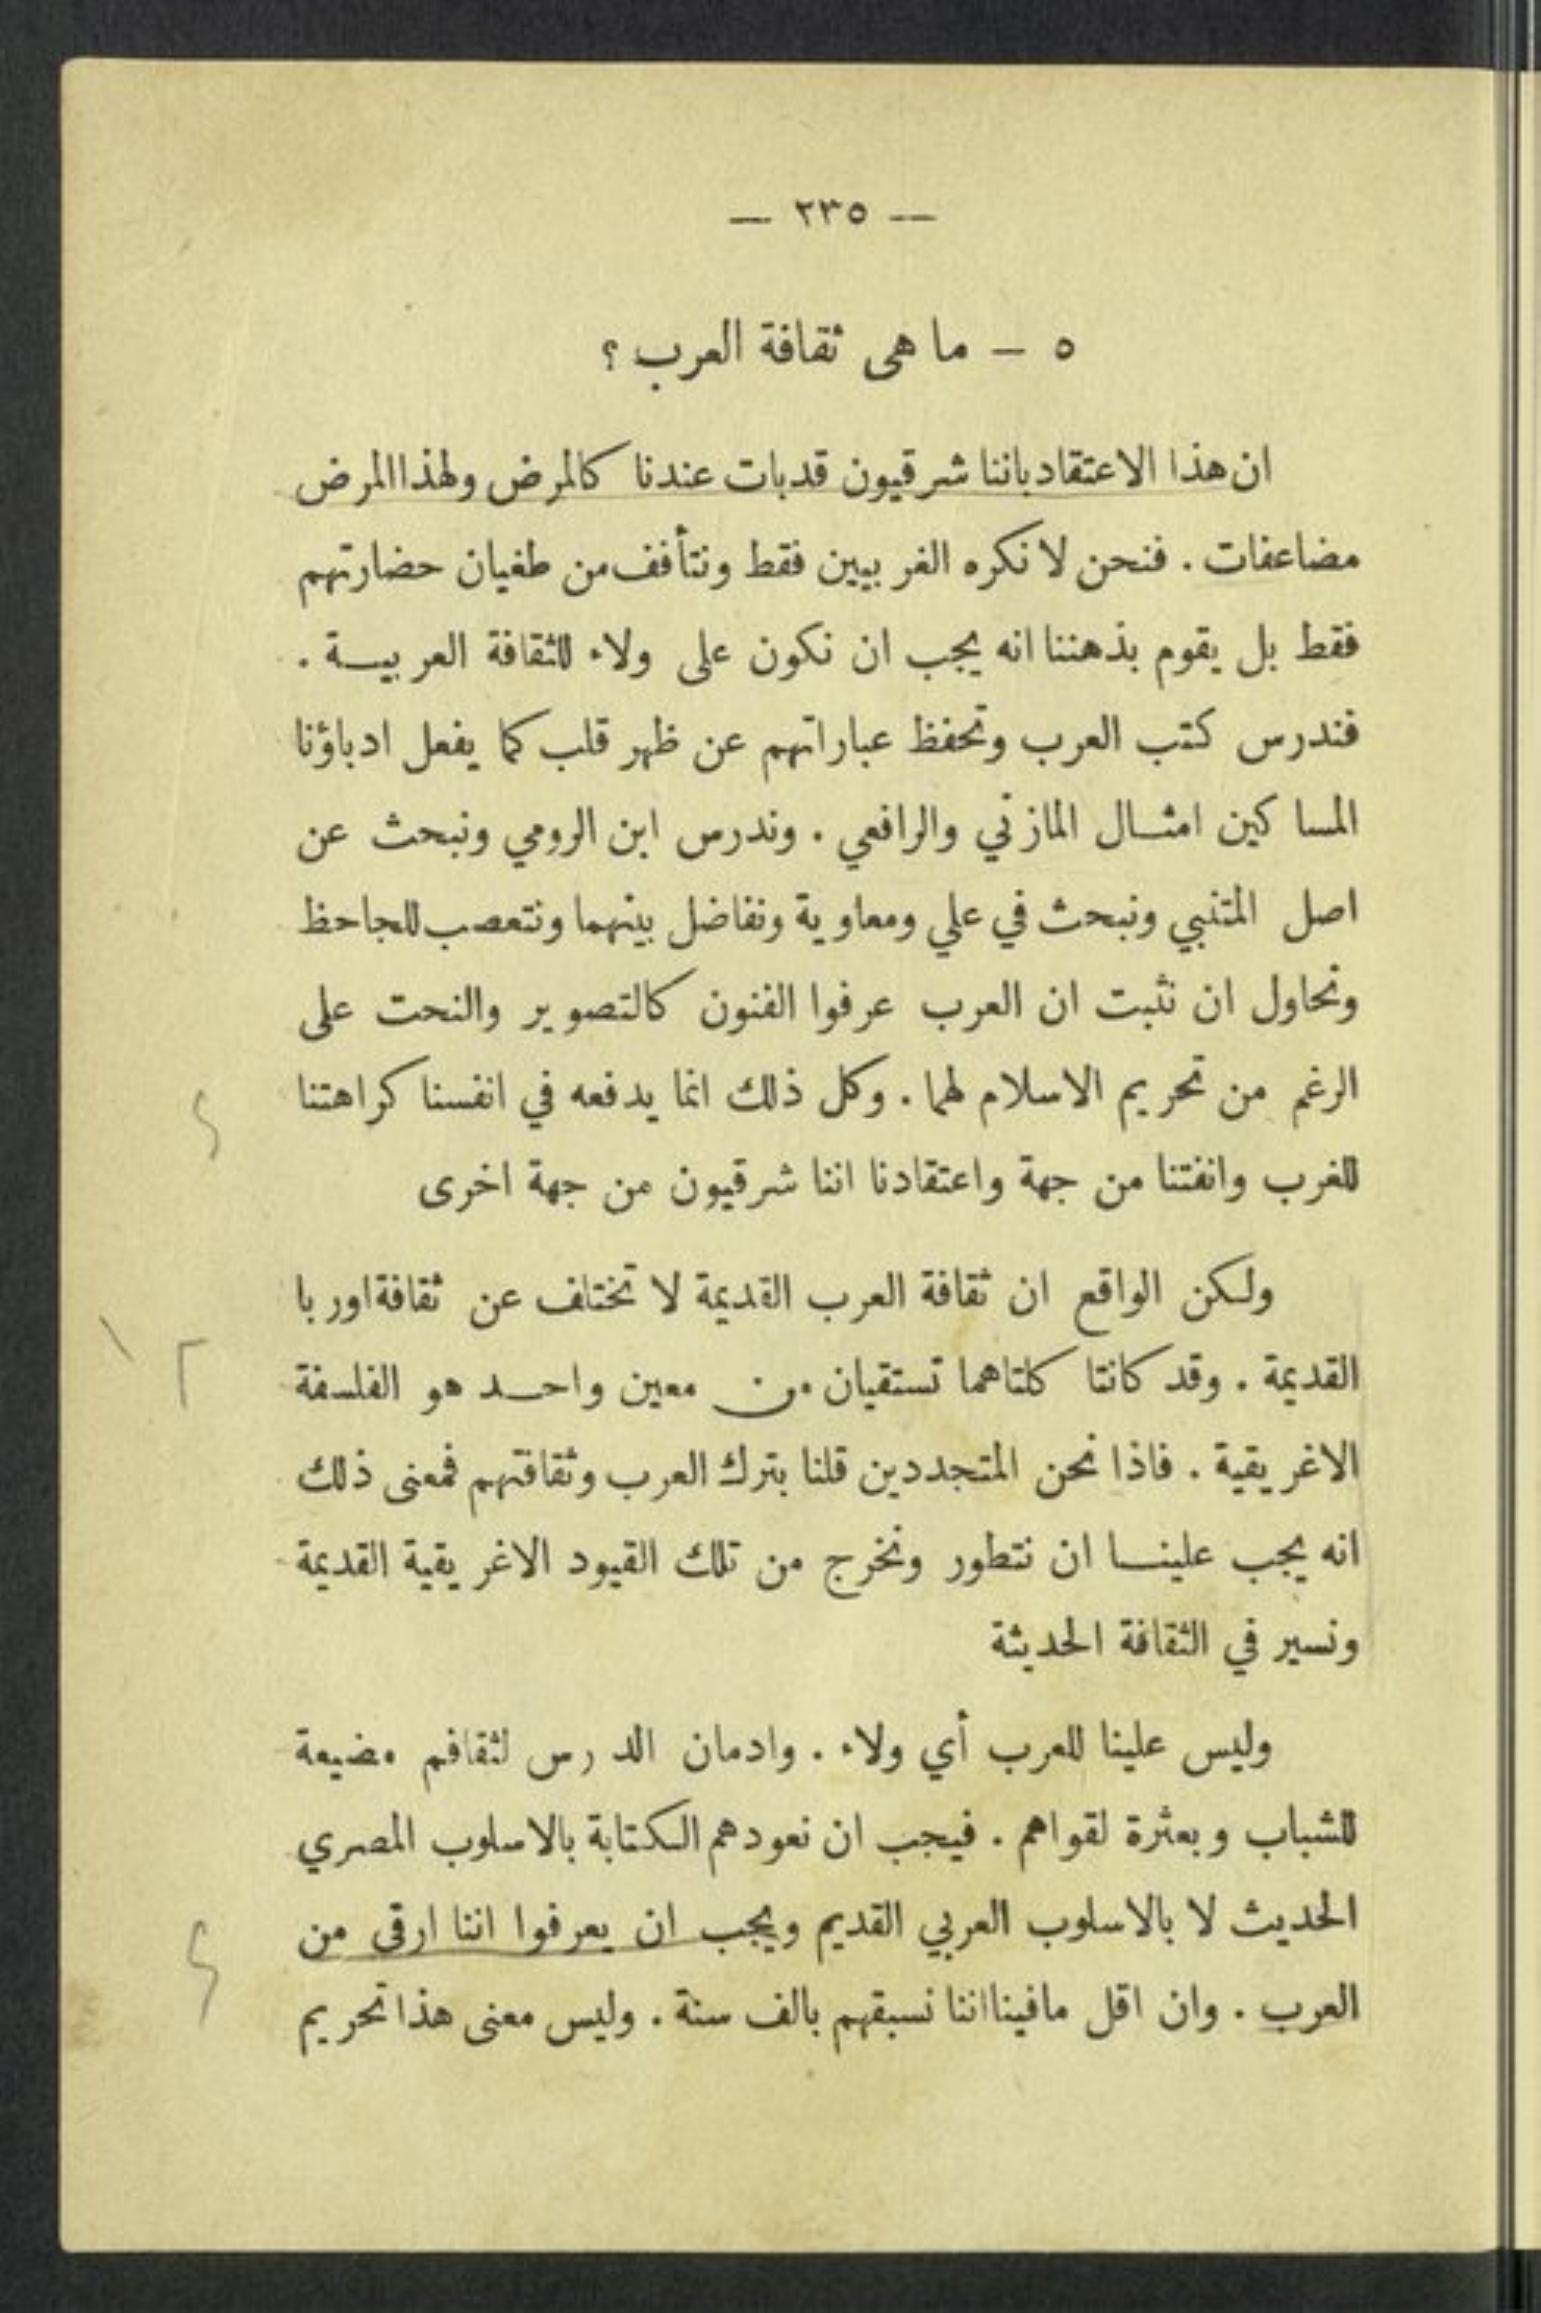 — ٢٣٥ —
٥ — ما هى ثقافة العرب ؟
ان هذا الاعتقاد باننا شرقيون قد بات عندنا كالمرض ولهذا المرض
مضاعفات . فنحن لا نكره الغربيين فقط ونتأفف من طغيان حضارتهم
فقط بل يقوم بذهننا انه يجب ان نكون على ولاء للثقافة العربيـــة .
فندرس كتب العرب وتحفظ عباراتهم عن ظهر قلب كما يفعل ادباؤنا
المساكين امثـــال المازني والرافعي . وندرس ابن الرومي ونبحث عن
اصل المتنبي ونبحث في علي ومعاوية ونفاضل بينهما ونتعصب للجاحظ
ونحاول ان نثبت ان العرب عرفوا الفنون كالتصوير والنحت على
الرغم من تحريم الاسلام لهما . وكل ذلك انما يدفعه في انفسنا كراهتنا
للغرب وانفتنا من جهة واعتقادنا اننا شرقيون من جهة اخرى
ولكن الواقع ان ثقافة العرب القديمة لا تختلف عن ثقافة اوربا
القديمة . وقد كانتا كلتاهما تستقيان من معين واحـــد هو الفلسفة
الاغريقية . فاذا نحن المتجددين قلنا بترك العرب وثقافتهم فمعنى ذلك
انه يجب علينـــا ان نتطور ونخرج من تلك القيود الاغريقية القديمة
ونسير في الثقافة الحديثة
وليس علينا للعرب أي ولاء . وادمان الدرس لثقافم مضيعة
للشباب وبعثرة لقواهم . فيجب ان نعودهم الكتابة بالاسلوب المصري
الحديث لا بالاسلوب العربي القديم ويجب ان يعرفوا اننا ارقى من
العرب . وان اقل مافينا اننا نسبقهم بالف سنة . وليس معنى هذا تحريم